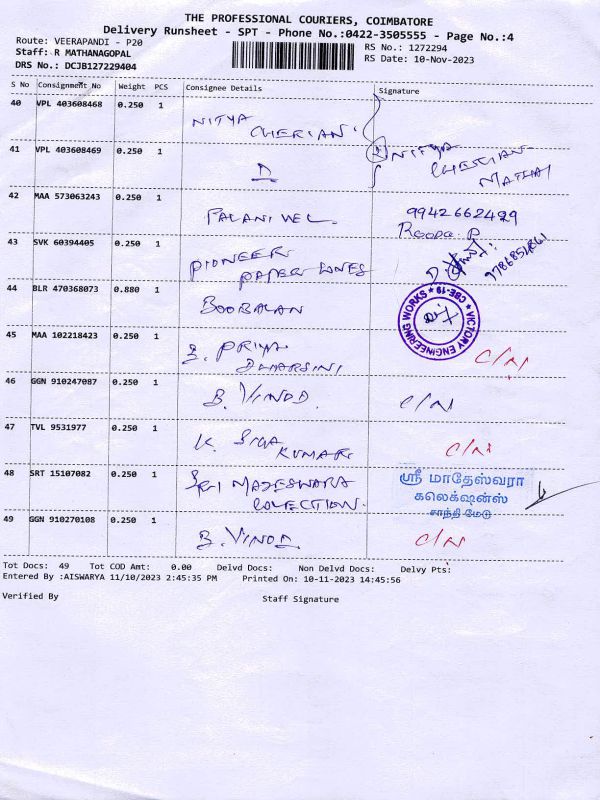 THE PROFESSIONAL COURIERS, COIMBATORE
Delivery Runsheet - SPT - Phone No.:0422-3505555 - Page No.:4
Route: VEERAPANDI - P20
RS No.: 1272294
Staff: R MATHANAGOPAL
RS Date: 10-Nov-2023
DRS No.: DCJB127229404
S No Consignment No Weight PCS Consignee Details Signature
40 VPL 403608468 0.250 1 NITYA CHERIAN
41 VPL 403608469 0.250 1 D NITYA CHERIAN MATHAI
42 MAA 573063243 0.250 1 PALANIVEL. 9942662429
Roopa. P
43 SVK 60394405 0.250 1 PIONEER PAPER CONES
44 BLR 470368073 0.880 1 BOOBALAN
VICTORY ENGINEERING WORKS * CBE-19 *
45 MAA 102218423 0.250 1 S. PRIYA DHARSINI C/N
46 GGN 910247087 0.250 1 B. VINOD. C/N
47 TVL 9531977 0.250 1 K. SIVA KUMAR C/N
48 SRT 15107082 0.250 1 SRI MADESWARA COLLECTION.
ஸ்ரீ மாதேஸ்வரா
கலெக்ஷன்ஸ்
சாந்தி மேடு
49 GGN 910270108 0.250 1 B. VINOD C/N
Tot Docs: 49 Tot COD Amt: 0.00 Delvd Docs: Non Delvd Docs: Delvy Pts:
Entered By :AISWARYA 11/10/2023 2:45:35 PM Printed On: 10-11-2023 14:45:56
Verified By Staff Signature